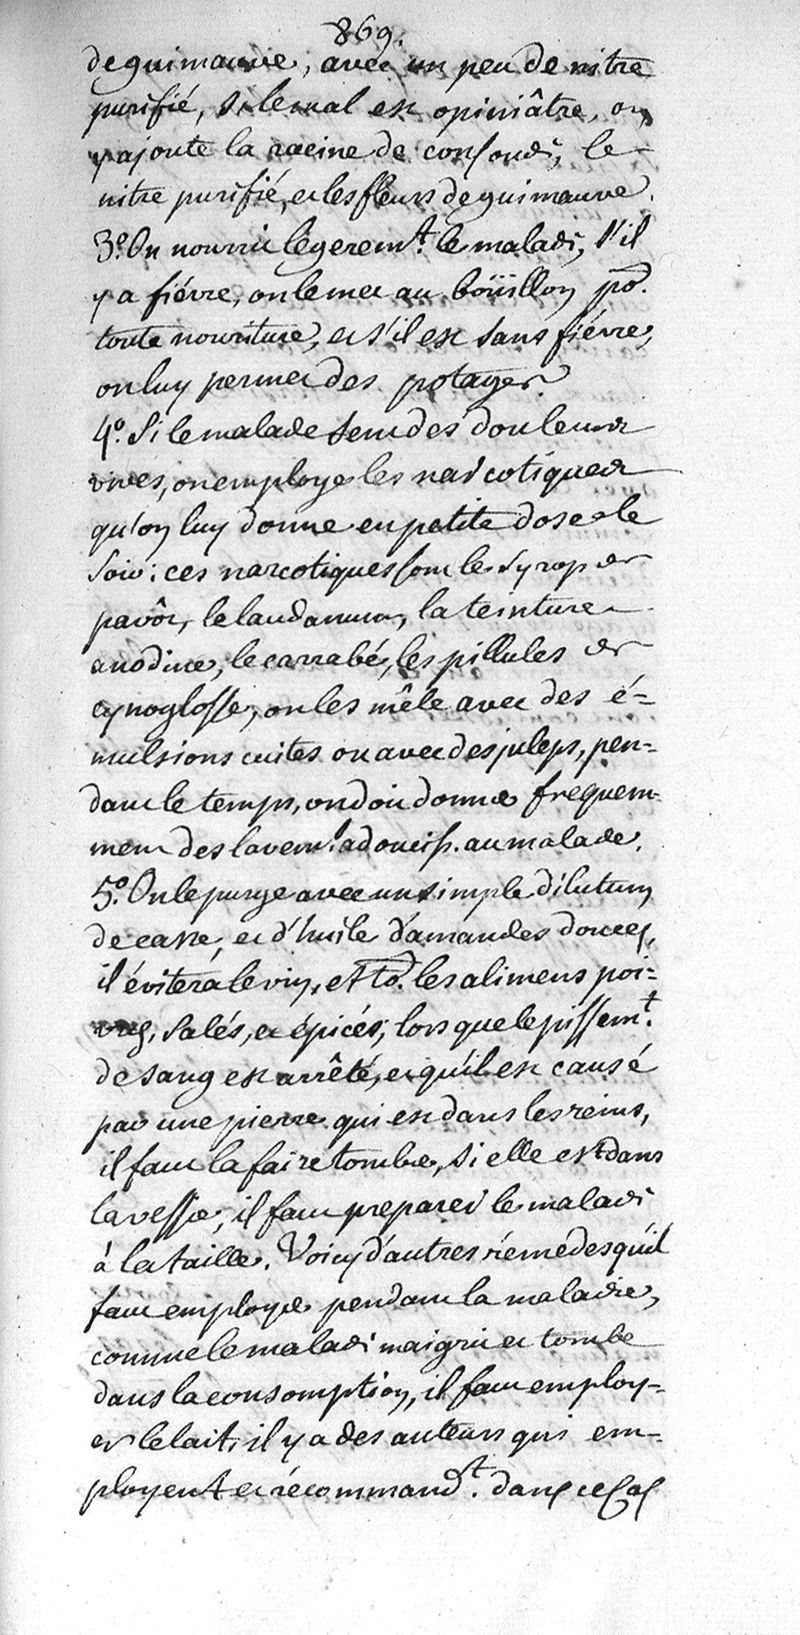 869.
de guimauve, avec un peu de nitre
purifié, si le mal est opiniâtre, on
y ajoute la racine de consoude, le
nitre purifié, et les fleurs de guimauve.
3.° On nourrit légerem.t le malade, s'il
y a fiévre, on le met au boüillon po.r
toute nouriture, et s'il est sans fiévre,
on luy permet des potages.
4.° Si le malade sent des douleurs
vives, on employe les narcotiques
qu'on luy donne en petite dose le
soir: ces narcotiques sont le syrop de
pavôt, le laudanum, la teinture
anodine, le carrabé, les pillules de
cynoglosse, on les mêle avec des é-
mulsions cuites ou avec des juleps, pen-
dant le temps, on doit donner frequem-
ment des lavem.ts adouciss. au malade.
5.° On le purge avec un simple dilutum
de casse, et d'huile d'amandes douces,
il évitera le vin, et to.s les alimens poi-
vrés, salés, et épicés; lors que le pissem.t
de sang est arrêté, et qu'il est causé
par une pierre qui est dans les reins,
il faut la faire tomber, si elle est dans
la vessie, il faut preparer le malade
à la taille. Voicy d'autres rémedes qu'il
faut employer pendant la maladie,
comme le malade maigrit et tombe
dans la consomption, il faut employ-
er le lait, il y a des auteurs qui em-
ployent et récommand.t dans ce cas